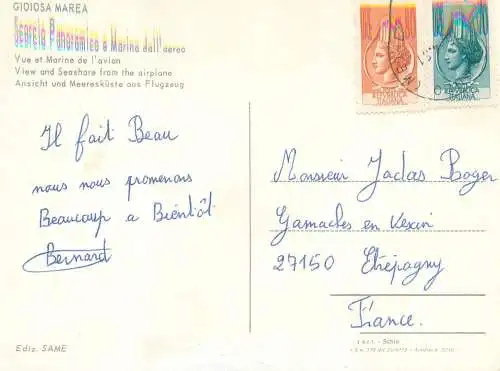 GIOIOSA MAREA
Scorcio Panoramico e Marina dall'aereo
Vue et Marine de l'avion
View and Seashare from the airplane
Ansicht und Meeresküste aus Flugzeug
REPUBBLICA
ITALIANA
REPUBBLICA
ITALIANA
Il fait Beau
nous nous promenons
Beaucoup a Bientôt
Bernard
Monsieur Jadas Roger
Gamaches en Vexin
27150 Etrépagny
France.
Ediz. SAME